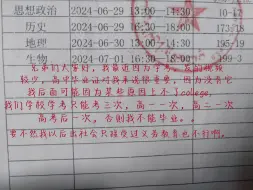 思想政治 2024-06-29 13:00-14:30 10-17
历史 2024-06-29 16:30-18:00 173-18
地理 2024-06-30 13:00-14:30 195-19
生物 2024-07-01 16:30-18:00 199-3
兄弟们大家好，我最近因为学考，发的视频
较少，高中毕业证对我来说很重要，因为没有它
我后面可能因为某些原因上不了college，
我们学校学考只能考三次，高一一次，高二一次
高考后一次，否则我不能毕业。。
要不然我以后出社会只接受过义务教育也不行啊。